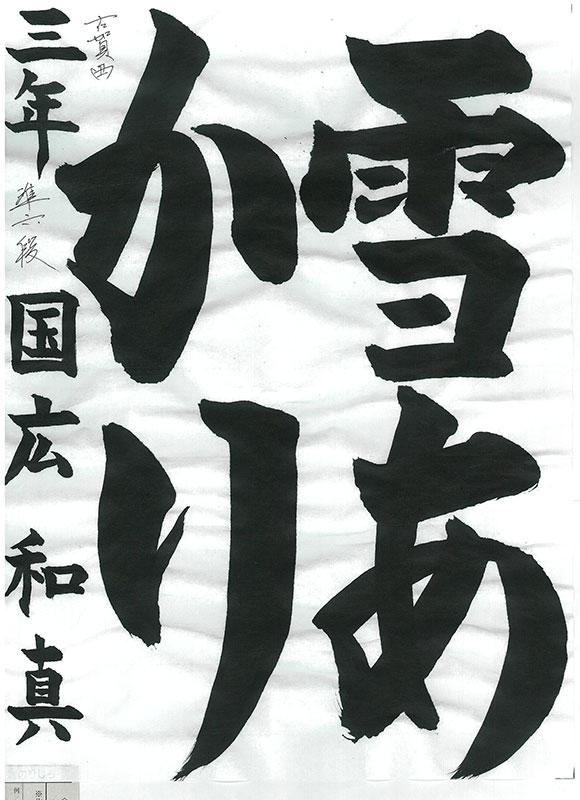 雪あ
かり
三年 準六段 国広和真
古賀西